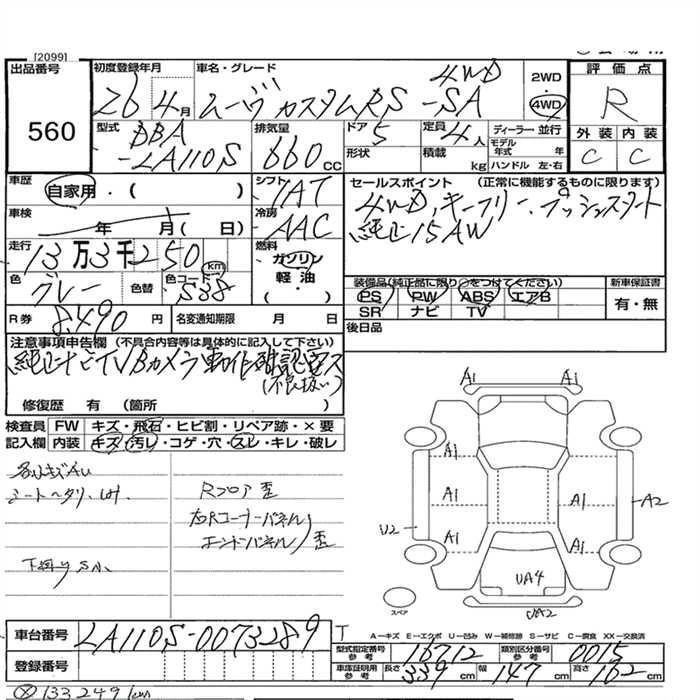 [2099]
出品番号 560
初度登録年月 26年4月
車名・グレード ムーヴ カスタムRS-SA 4WD
2WD
4WD
評価点 R
外装 C 内装 C
型式 DBA-LA110S
排気量 660 CC
ドア 5
形状
定員 4人
積載 kg
ディーラー・並行
モデル年式 年
ハンドル 左・右
車歴 自家用・( )
シフト IAT
セールスポイント (正常に機能するものに限ります)
4WD、キーフリー、プッシュスタート
純正15AW
車検 年 月( 日)
冷房 AAC
走行 13万3千250 km
燃料 ガソリン 軽油 ( ・ )
色 グレー 色替 色コード S38
装備品(純正品に限り○をつけてください)
PS PW ABS エアB
SR ナビ TV
新車保証書 有・無
R券 8,490円
名変通知期限 月 日
後日品
注意事項申告欄 (不具合内容等は具体的に記入して下さい)
純正ナビTVBカメラ動作確認電ス
(不良扱い)
修復歴 有 (箇所 )
検査員 FW キズ・飛石・ヒビ割・リペア跡・×要
記入欄 内装 キズ・汚レ・コゲ・穴・スレ・キレ・破レ
シートヘタリ、
下廻りS小
Rフロア歪
右Rコーナーパネル
エンドパネル 歪
A1 A1
A1 A1 A1 A1 A1
A2
U2
UA4
UA2
スペア
車台番号 LA110S-0073289
登録番号
A-キズ E-エクボ U-凹み W-補修跡 S-サビ C-腐食 XX-交換済
型式指定番号 参考 16712
類別区分番号 参考 0015
車庫証明用 参考 長さ 339cm 幅 147cm 高さ 162cm
133249km